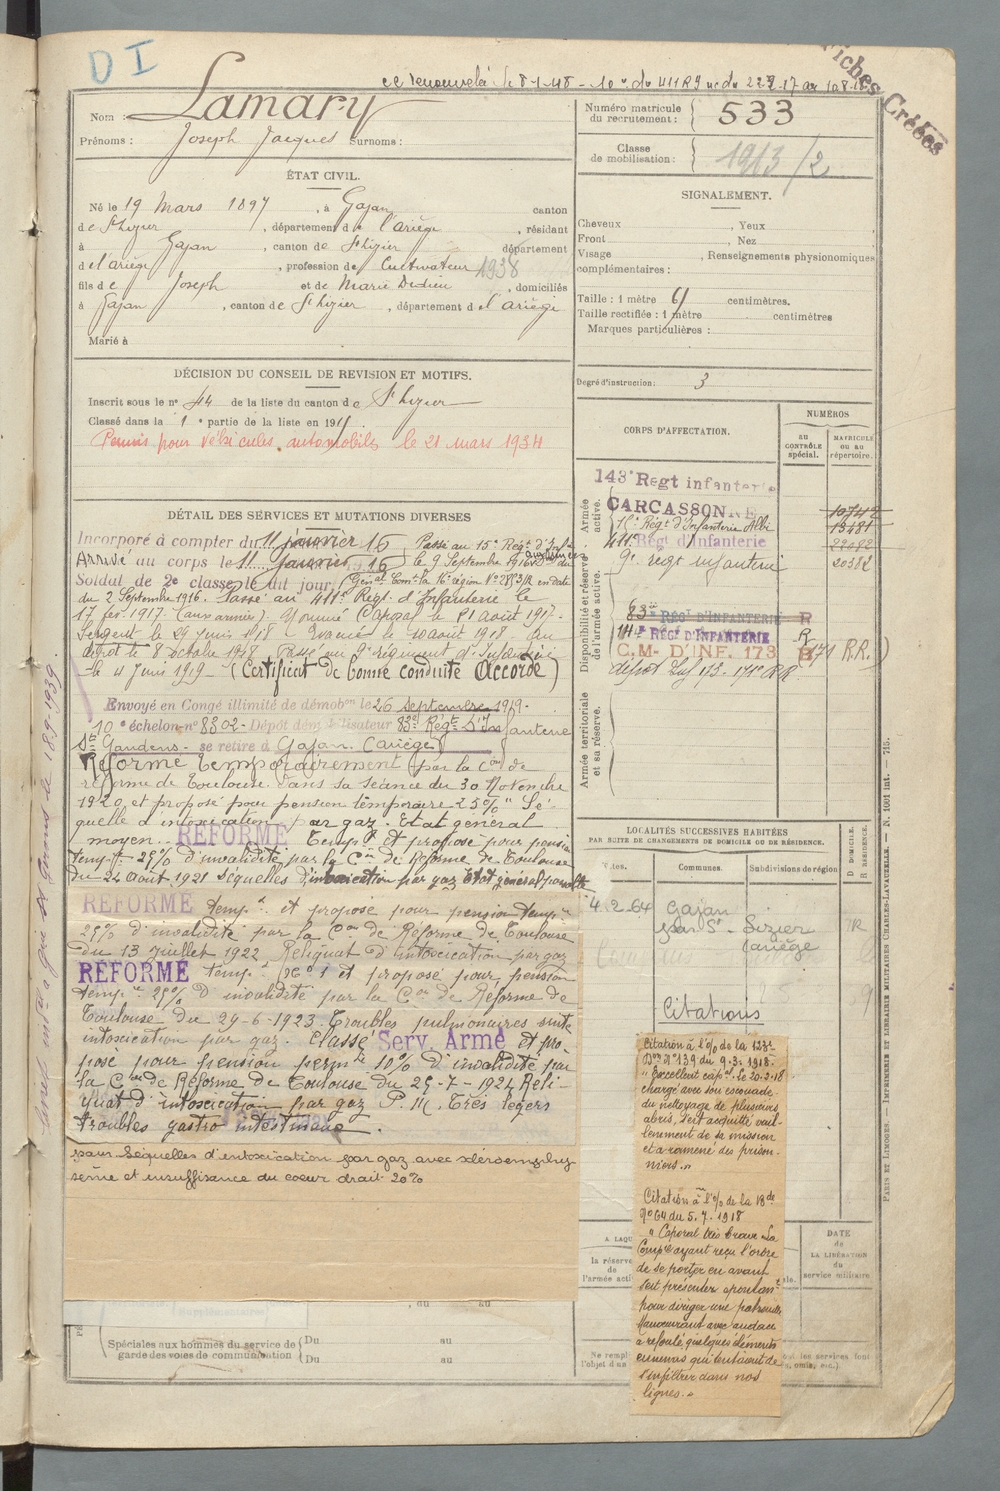 D I
Fiches Créées
Nom : Lamary
Prénoms : Joseph Jacques Surnoms :
Numéro matricule du recrutement : 533
Classe de mobilisation : 1913/2
ÉTAT CIVIL.
Né le 19 mars 1897, à Gajan canton
de St Lizier, département de l'ariège, résidant
à Gajan, canton de St Lizier département
d e l'ariège, profession de Cultivateur 1938
fils de Joseph et de Marie Dedieu, domiciliés
à Gajan, canton de St Lizier, département de l'ariège
Marié à
SIGNALEMENT.
Cheveux , Yeux
Front , Nez
Visage , Renseignements physionomiques
complémentaires :
Taille : 1 mètre 61 centimètres.
Taille rectifiée : 1 mètre centimètres
Marques particulières :
Degré d'instruction : 3
DÉCISION DU CONSEIL DE REVISION ET MOTIFS.
Inscrit sous le no 44 de la liste du canton de St Lizier
Classé dans la 1e partie de la liste en 191
Permis pour véhicules automobiles le 21 mars 1934
DÉTAIL DES SERVICES ET MUTATIONS DIVERSES
Incorporé à compter du 11 janvier 16 Passé au 15e Régt d'Infie
Arrivé au corps le 11 janvier 1916 le 9 Septembre 1916
Soldat de 2e classe le dit jour Génal Comt la 16e région en date
du 2 Septembre 1916. Passé au 411e Régt d'Infanterie le
17 fev 1917 (aux armées). Nommé Caporal le 21 août 1917.
Sergent le 29 juin 1918 - Evacué le 10 août 1918. Au
dépôt le 8 octobre 1918. Passé au 9e régiment d'Infanterie
le 4 Juin 1919 - (Certificat de bonne conduite Accordé)
Envoyé en Congé illimité de démobon le 26 Septembre 1919.
10e échelon no 8302 - Dépôt dém. lisateur 83e Régt D'Infanterie
St Gaudens. se retire à Gajan (Ariège)
Réformé temporairement par la Con de
réforme de Toulouse dans sa séance du 30 Novembre
1920, et proposé pour pension temporaire 25% "Sé-
quelle d'intoxication par gaz. Etat général
moyen. RÉFORMÉ Temp.t et proposé pour pension
temp.re 25% d'invalidité par la Con de Réforme de Toulouse
du 24 Août 1921 Séquelles d'intoxication par gaz état général passable
RÉFORMÉ temp.t et proposé pour pension temp.re
25% d'invalidité par la Con de Réforme de Toulouse
du 13 juillet 1922. Reliquat d'intoxication par gaz
RÉFORMÉ temp.t et proposé pour pension
temp.re 25% d'invalidité par la Con de Réforme de
Toulouse du 29-6-1923. Troubles pulmonaires suite
intoxication par gaz. Classé Serv. Armé et pro-
posé pour pension perm.te 10% d'invalidité par
la Con de Réforme de Toulouse du 25-7-1924 Reli-
quat d'intoxication par gaz P.M. très légers
troubles gastro intestinaux.
pour séquelles d'intoxication par gaz avec scléroemphy
sème et insuffisance du coeur droit 20%
CORPS D'AFFECTATION.
NUMÉROS
AU CONTRÔLE spécial.
MATRICULE OU AU répertoire.
Armée active.
143e Regt infanterie
CARCASSONNE 10742
15e Régt d'Infanterie Albi 13481
411e Régt d'Infanterie 22082
9e regt infanterie 20382
Disponibilité et réserve de l'armée active.
83e RÉGt D'INFANTERIE R
14e RÉGt D'INFANTERIE R
C.M. D'INF. 173 R (171 R.R.)
dépôt Inf 173. 171e RR
Armée territoriale et sa réserve.
LOCALITÉS SUCCESSIVES HABITÉES
PAR SUITE DE CHANGEMENTS DE DOMICILE OU DE RÉSIDENCE.
Communes. Subdivisions de région
D DOMICILE.
R RÉSIDENCE.
4.2.64 Gajan
par St-Lizier
(ariège R
Citations
Citation à l'o/ de la 123e
Don no 139 du 9.3.1918.
"Excellent capal. le 20-2-18
chargé avec son escouade
du nettoyage de plusieurs
abris, s'est acquitté vail-
lamment de sa mission
et a ramené des prison-
niers."
Citation à l'o/ de la
no 64 du 5.7.1918
"Caporal très brave. Sa
Compie ayant reçu l'ordre
de se porter en avant
s'est présenté spontant
pour diriger une patrouille
Manoeuvrant avec audace
a refoulé quelques éléments
ennemis qui tentaient de
s'infiltrer dans nos
lignes."
DATE
de
LA LIBÉRATION
du
service militaire
la réserve
de
l'armée acti
Spéciales aux hommes du service de
garde des voies de communication
Du au
Du au
PARIS ET LIMOGES. — IMPRIMERIE ET LIBRAIRIE MILITAIRES CHARLES-LAVAUZELLE. — N. 1001 int. — 715.